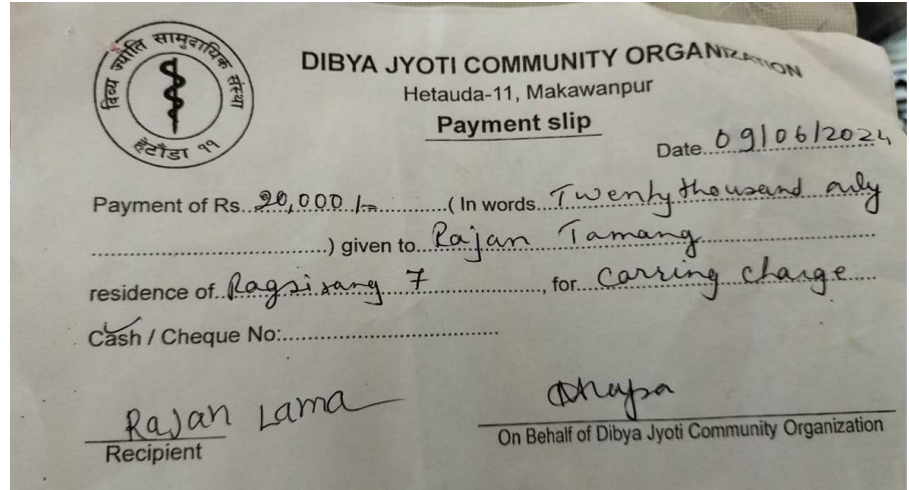 दिव्य ज्योति सामुदायिक संस्था
हेटौंडा ११
DIBYA JYOTI COMMUNITY ORGANIZATION
Hetauda-11, Makawanpur
Payment slip
Date 09/06/2024
Payment of Rs. 20,000/- (In words Twenty thousand only
) given to Rajan Tamang
residence of Ragsirang 7, for Carring charge
Cash / Cheque No:
Rajan Lama
Recipient
Dhapa
On Behalf of Dibya Jyoti Community Organization